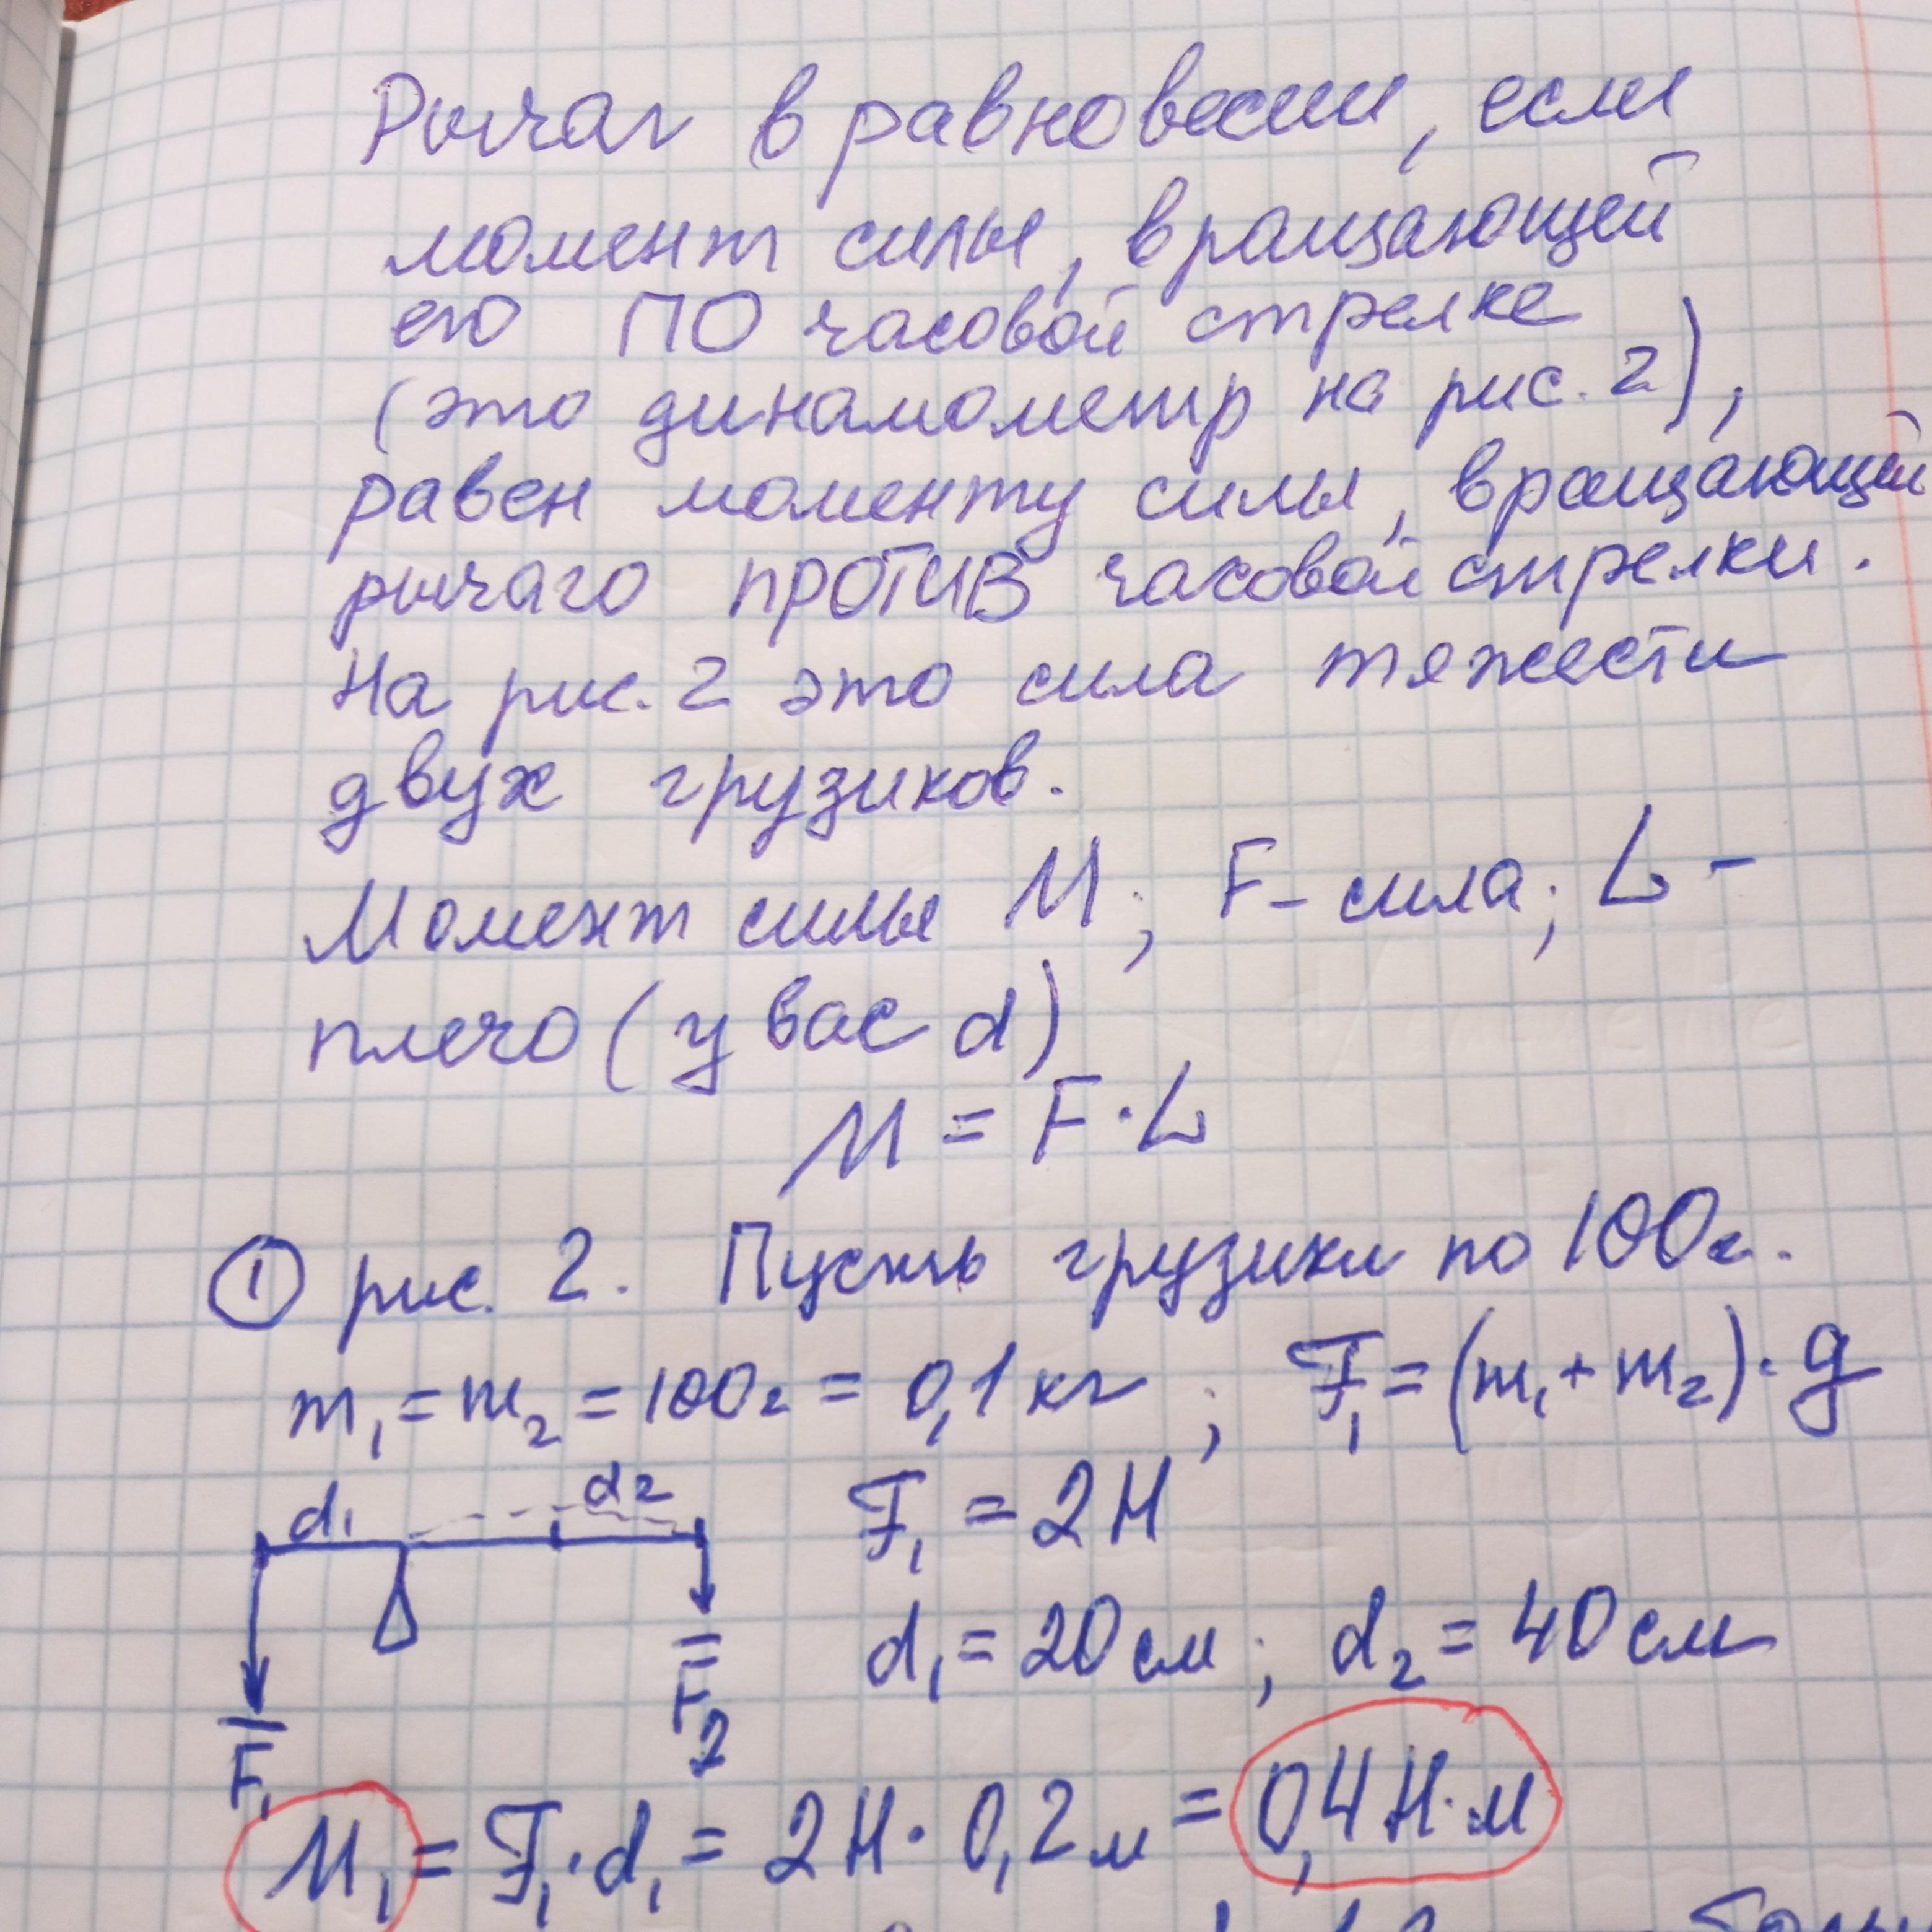 Рычаг в равновесии, если
момент силы, вращающей
его ПО часовой стрелке
(это динамометр на рис. 2),
равен моменту силы, вращающей
рычаго ПРОТИВ часовой стрелки.
На рис. 2 это сила тяжести
двух грузиков.
Момент силы M; F - сила; L -
плечо (у вас d)
M = F · L
① рис. 2. Пусть грузики по 100г.
m₁ = m₂ = 100г = 0,1 кг ; F₁ = (m₁ + m₂) · g
d₁ d₂ F₁ = 2 Н
d₁ = 20 см ; d₂ = 40 см
F₁ F₂
M₁ = F₁ · d₁ = 2 Н · 0,2 м = 0,4 Н · м